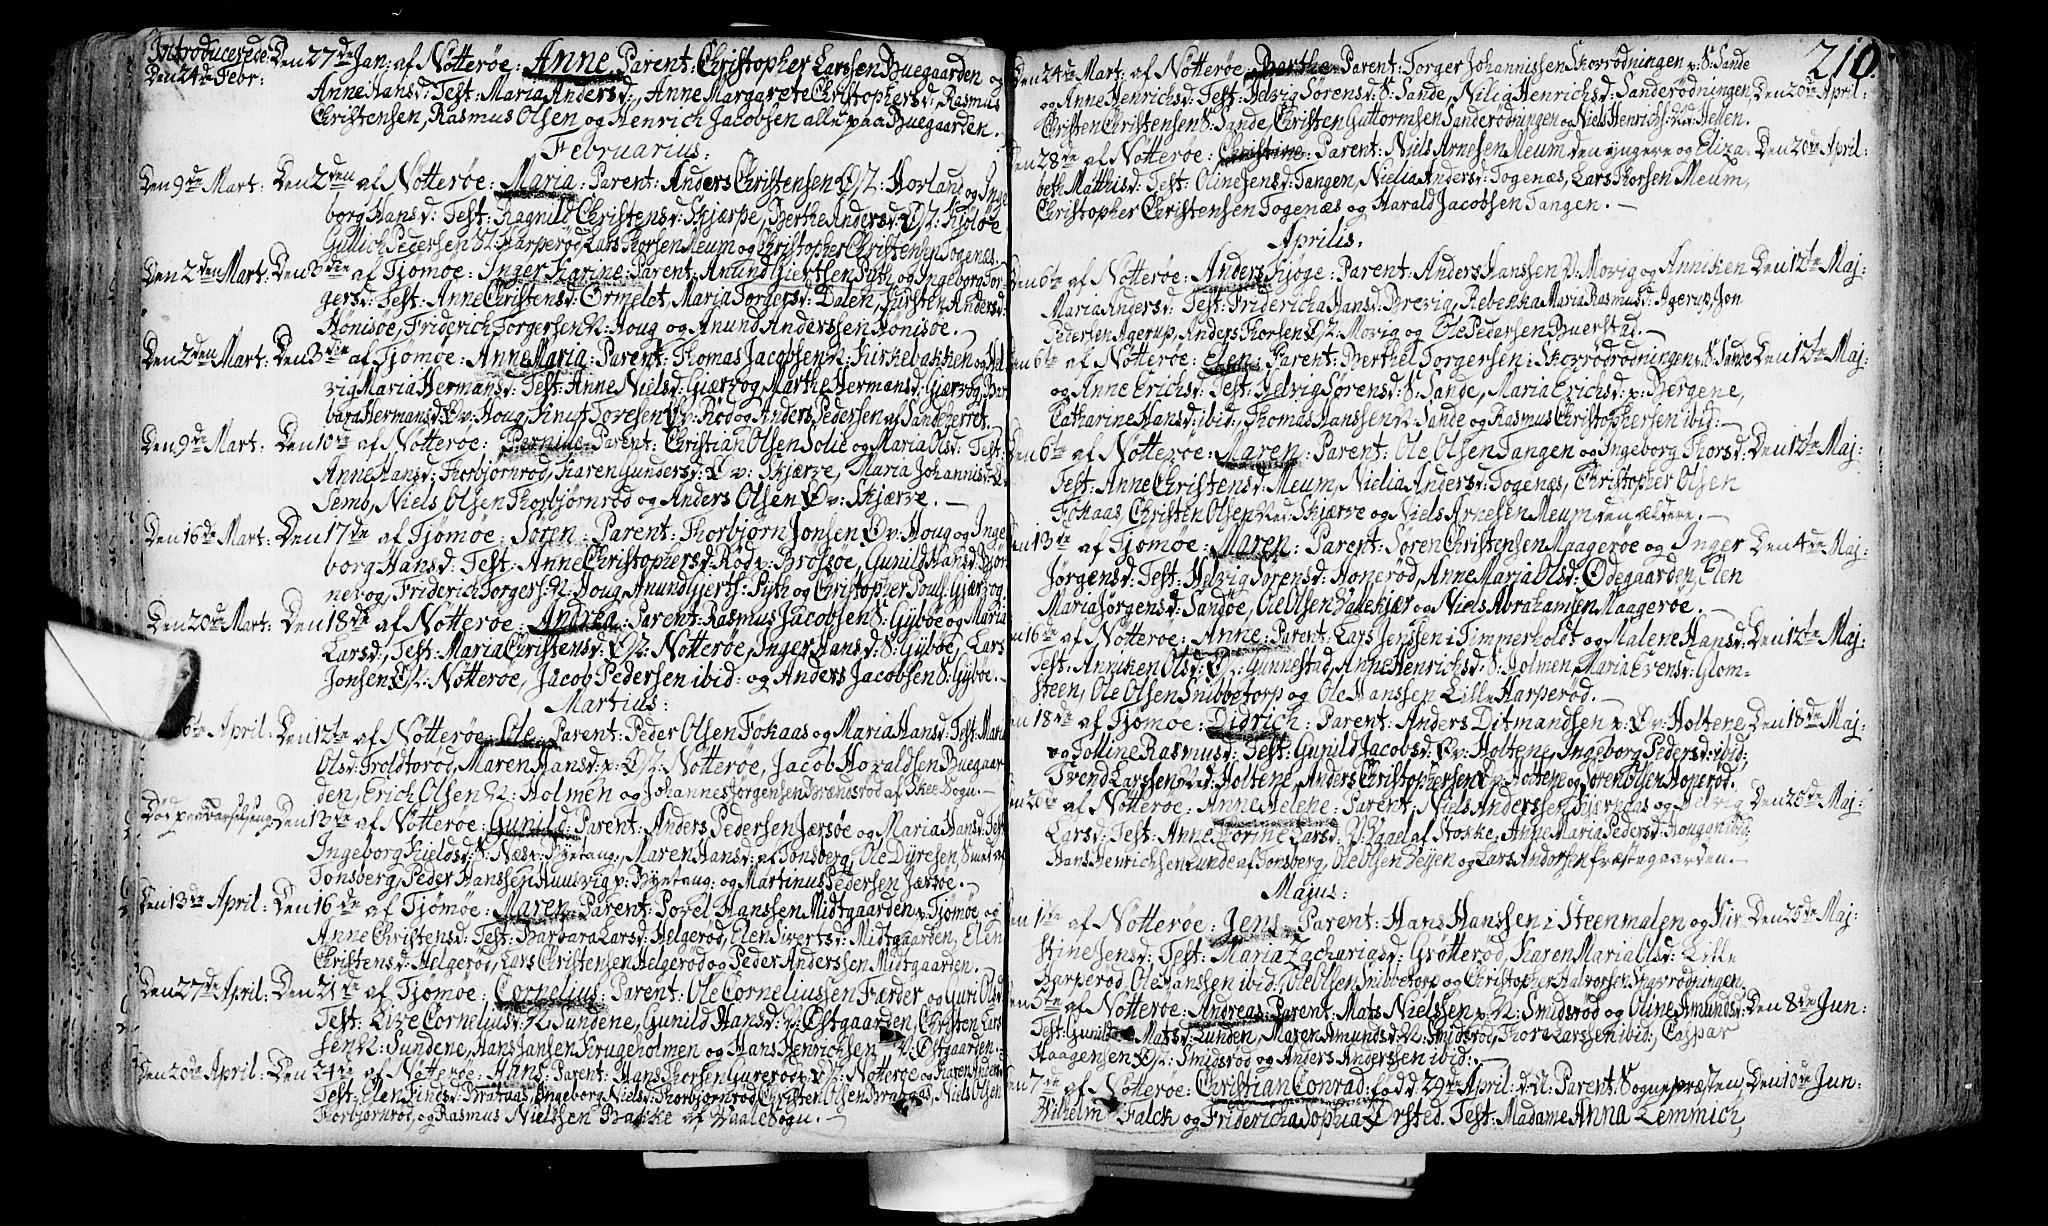 Introducerede: Den 27de Jan: af Nøtterøe: Anne. Parent: Christopher Larssen Buegaarden og
Den 24de Febr:
Anne Hansd: Test: Maria Andersd:, Anne Margarete Christophersd: Rasmus
Christensen, Rasmus Olsen og Henrich Jacobsen alle paa Buegaarden.
Februarius:
Den 9de Mart: Den 2den af Nøtterøe: Maria: Parent: Anders Christensen Ø: Horland og Inge
borg Hansd: Test: Ragnild Christensd: Skjærpe, Berthe Andersd: Kjøløe
Gullich Pedersen N: Harperød, Lars Thorsen Meum og Christopher Christensen Togenæs.
Den 2den Mart: Den 3die af Tjømøe: Inger Karine: Parent: Anund Giertsen Pyth og Ingeborg Tor
gersd: Test: Anne Christensd: Ormelet, Maria Torgersd: Dalen, Kirsten Andersd:
Hønisøe, Friderich Torgersen N: Houg og Anund Anderssen Hønisøe.
Den 2den Mart: Den 3die af Tjømøe: Anne Maria: Parent: Thomas Jacobsen N: Kirkebakken og Ha
vig Maria Hermansd: Test: Anne Nielsd: Giærvog, Marthe Hermansd: Giærvog, Bar
bara Hermansd: Houg, Knut Toresen Rød og Anders Pedersen af Sandeherret.
Den 9de Mart: Den 10de af Nøtterøe: Pernille: Parent: Christian Olsen Jolie og Maria Olsd: Test:
Anne Hansd: Thorbjørnrød, Karen Gundersd: Ø v: Skjærve, Maria Johannisd:
Semb, Niels Olsen Thorbjørnrød og Anders Olsen Ø v: Skjærve.
Den 16de Mart: Den 17de af Tjømøe: Søren: Parent: Thorbjørn Jonsen Øv: Houg og Inge
borg Hansd: Test: Anne Christophersd: Rød v: Brøtsøe, Gunild Hansd: Bjør
nevog, Friderich Torgers: N: Houg, Anund Gierts: Pyth og Christopher Pouls: Giærvog
Den 20de Mart: Den 18de af Nøtterøe: Andrea: Parent: Rasmus Jacobsen S: Gipøe og Maria
Larsd: Test: Maria Christensd: Ø: Nøtterøe, Inger Hansd: S: Gipøe, Lars
Jonsen Ø: Nøtterøe, Jacob Pedersen ibid: og Anders Jacobsen S: Gipøe.
Martius:
6te April: Den 12te af Nøtterøe: Ole: Parent: Peder Olsen Føkaas og Maria Hansd: Test: Mari
Olsd: Troldtorød, Maren Hansd: v: Ø: Nøtterøe, Jacob Horaldsen Buegaar
den, Erich Olsen N: Holmen og Johannes Jørgensen Brændsrød af Skee Sogn.
Den 13de af Nøtterøe: Gunild: Parent: Anders Pedersen Jærsøe og Maria Hansd: Test:
Ingeborg Kieldsd: S: Næs v: Bynetang:, Maren Hansd: af Tønsberg, Ole Dyresen
Tønsberg, Peder Hanssen Huusvig v: Bynetang: og Martinus Pedersen Jærsøe.
Den 13de April: Den 16de af Tjømøe: Maren: Parent: Povel Hanssen Midtgaarden v: Tjømøe og
Anne Christensd: Test: Barbara Larsd: Helgerød, Elen Siversd: Midtgaarden, Elen
Christensd: Helgerød, Lars Christensen Helgerød og Peder Anderssen Midtgaarden.
Den 27de April: Den 21de af Tjømøe: Cornelius: Parent: Ole Corneliussen Færder og Guri Olsd:
Test: Live Corneliusd: N: Sundene, Gunild Hansd: N: Østgaarden, Christen Lars
sen N: Sundene, Hans Jansen Krugeholmen og Hans Henrichsen N: Østgaarden.
Den 20de April: Den 24de af Nøtterøe: Hans: Parent: Hans Thorsen Gurerød v: Ø: Nøtterøe og Karen Andersd:
Test: Elen Findsd: Brataas, Ingeborg Nielsd: Thorbjørnrød, Christen Olsen Brataas, Niels Olsen
Thorbjørnrød, og Rasmus Nielssen Bakke af Vaale Sogn.
210.
Den 24de Mart: af Nøtterøe: Berthe: Parent: Torger Johannissen Skovrødningen v: S: Sande
og Anne Henrichsd: Test: Helvig Sørensd: S: Sande, Nilia Henrichsd: Sanderødningen Den 20de April:
Christen Christensen S: Sande, Christen Guttormsen Sanderødningen og Niels Henrichs: Hellen.
Den 28de af Nøtterøe: Christine: Parent: Niels Arnesen Meum den yngere og Eliza- Den 20de April:
beth Matthisd: Test: Oline Jensd: Tangen, Nielia Andersd: Togenæs, Lars Thorsen Meum,
Christopher Christensen Togenæs og Harald Jacobsen Tangen.
Aprilis.
Den 6te af Nøtterøe: Anders Kjøge: Parent: Anders Hanssen N: Movig og Anniken Den 12te Maj:
Maria Andersd: Test: Fridericha Hansd: Brevig, Rebekka Maria Rasmusd: Agerup, Jon
Pedersen Agerup, Anders Thorsen Ø: Movig og Ole Pedersen Buerstad.
6te af Nøtterøe: Elen: Parent: Berthel Torgersen i Skovrødningen v: S: Sande Den 12te Maj:
og Anne Erichsd: Test: Helvig Sørensd: S: Sande, Maria Erichsd: v: Bergene,
Catharine Hansd: ibid:, Thomas Hanssen N: Sande og Rasmus Christophersen ibid:
Den 6te af Nøtterøe: Maren: Parent: Ole Olsen Tangen og Ingeborg Thorsd: Den 12te Maj:
Test: Anne Christensd: Meum, Nielia Andersd: Togenæs, Christopher Olsen
Føkaas, Christen Olsen Skjærve og Niels Arnesen Meum, den ældere.
13de af Tjømøe: Maren: Parent: Søren Christensen Maagerøe og Inger Den 4de Maj:
Jørgensd: Test: Helvig Sørensd: Honerød, Anne Maria Olsd: Ødegaarden, Elen
Maria Jørgensd: Sandøe, Ole Olsen Valekjær og Niels Abrahamsen Maagerøe.
16de af Nøtterøe: Anne: Parent: Lars Jenssen i Timmerholdt og Malene Hansd: Den 12te Maj:
Test: Anniken Olsd: Ø: Gunnestad, Anne Henrichsd: S: Holmen, Maria Evensd: Glom-
steen, Ole Olsen Snibbetorp og Ole Hanssen Lille Harperød.
18de af Tjømøe: Didrich: Parent: Anders Ditmandsen v: Øv: Holtene Den 18de Maj:
og Golline Rasmusd: Test: Gunild Jacobsd: Øv: Holtene, Ingeborg Pedersd: ibid:,
Trend Larssen Holtene, Anders Christophersen Holtene og Søren Olsen Honerød.
af Nøtterøe: Anne Helene: Parent: Niels Anderssen Kjernaas og Helvig Den 20de Maj:
Larsd: Test: Anne Torine Larsd: af Stokke, Anne Maria Pedersd: Hougan ibid:
Hans Henrichsen Lunde af Tønsberg, Ole Olsen Teyen og Lars Andersen Præstegaarden.
Majus:
1ste af Nøtterøe: Jens: Parent: Hans Hanssen i Steenmalen og Kir Den 25de Maj:
stine Jensd: Test: Maria Zachariasd: Grøtterød, Karen Maria Olsd: Lille
Harperød, Ole Hanssen ibid:, Ole Olsen Snibbetorp og Christopher Halvorsen Skovrødningen.
5te af Nøtterøe: Andreas: Parent: Mats Nielssen v: N: Smidsrød og Oline Amundsd: Den 8de Jun:
Test: Gunild Matsd: Lunden, Maren Amundsd: N: Smidsrød, Thore Larssen ibid:, Caspar
Haagensen Ø: Smidsrød og Anders Anderssen ibid:.
7de af Nøtterøe: Christian Conrad, fødd: 29de April: d: A: Parent: Sognepræsten Den 10de Jun:
Wilhelm Falck og Fridericha Sophia Ørsted. Test: Madame Anna Lemmich,